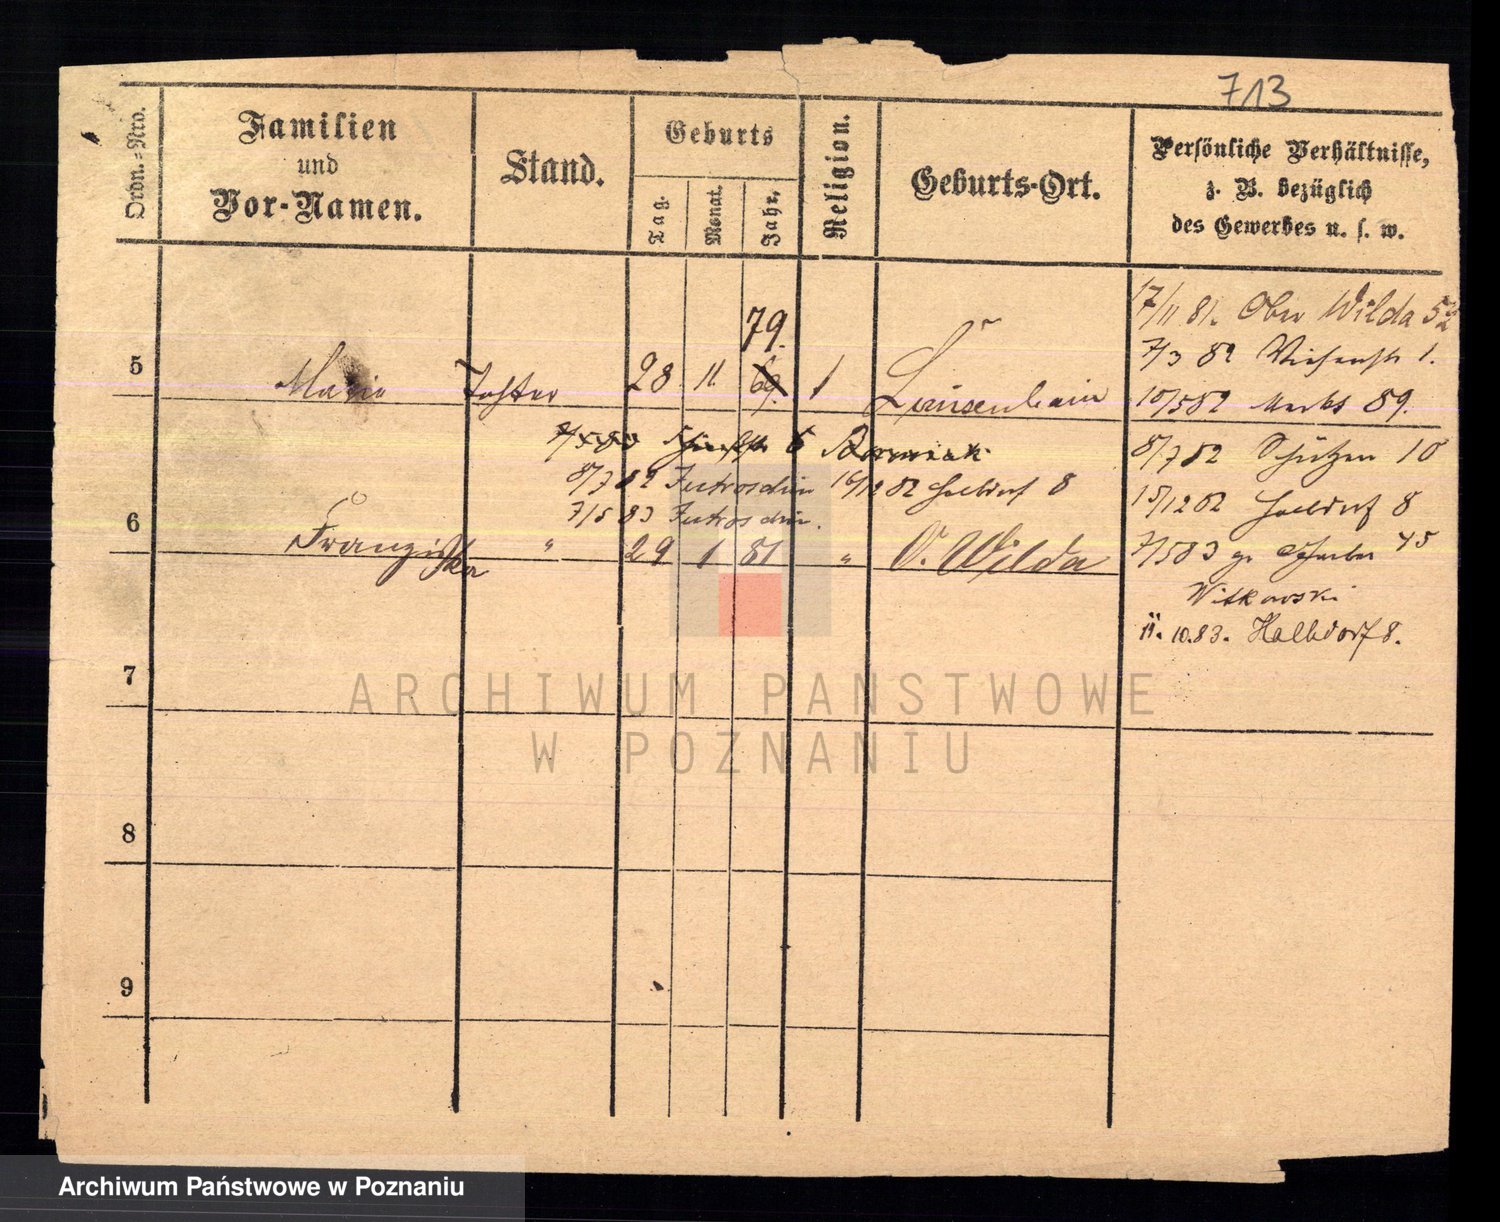 713
Ordn.-Nro.
Familien
und
Vor-Namen.
Stand.
Geburts
Tag.
Monat.
Jahr.
Religion.
Geburts-Ort.
Persönliche Verhältnisse,
z. B. bezüglich
des Gewerbes u. s. w.
17/11 81. Ober Wilda
79.
7/3 82 Wiesenstr 1.
5 Marie Tochter 28 11. 69. 1 Luisenhain
10/5 82 Markt 89.
6 Bäcker
8/7 82 Schützen 10
8/7 82 Jutroschin 16/12 82 Halbdorf 8
15/12 82 Halbdorf 8
7/5 83 Jutroschin.
6 Franziska " 29 1 81 " O. Wilda
7/5 83 gr Gerber 45
Witkowski
11. 10. 83. Halbdorf 8.
7
8
9
ARCHIWUM PAŃSTWOWE
W POZNANIU
Archiwum Państwowe w Poznaniu